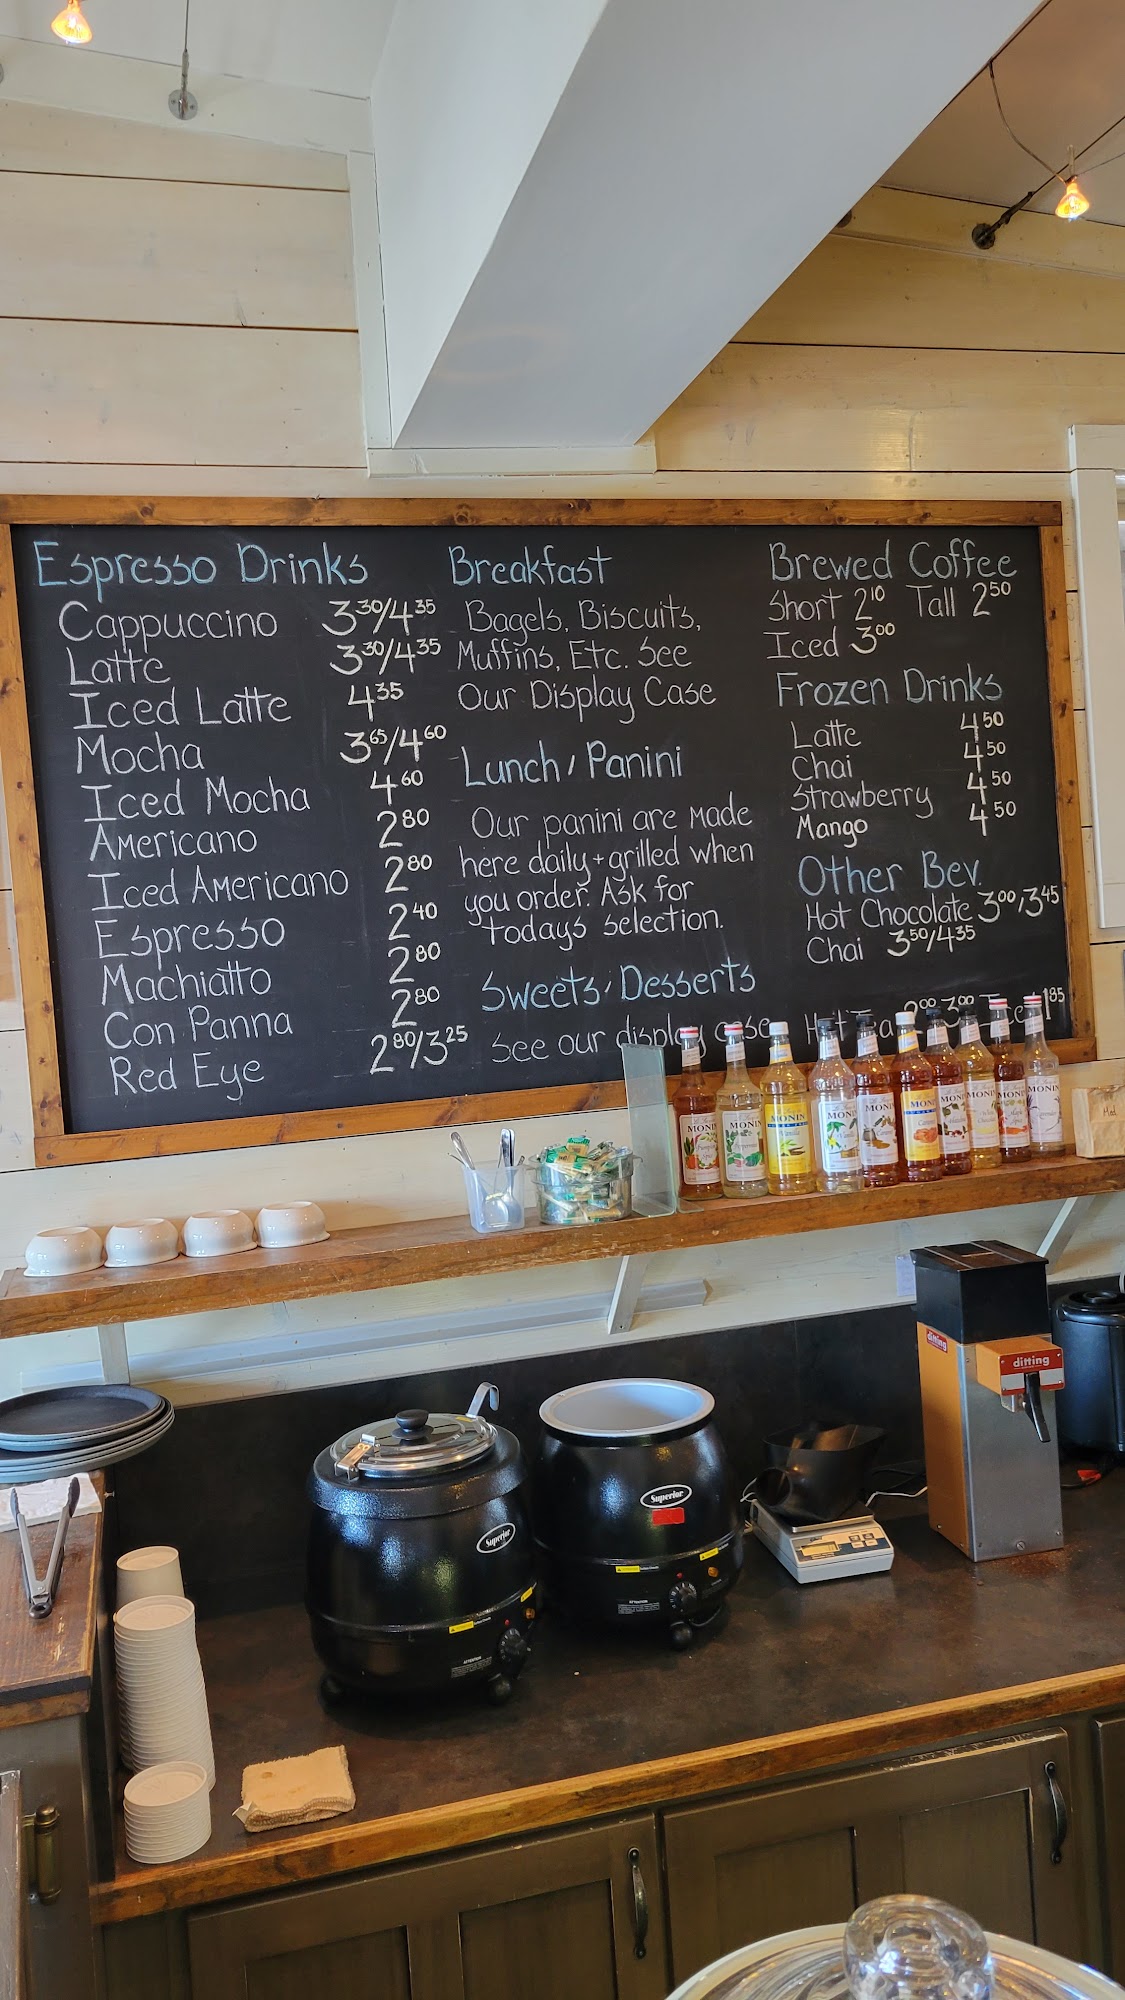 Espresso Drinks
Cappuccino 3³⁰/4³⁵
Latte 3³⁰/4³⁵
Iced Latte 4³⁵
Mocha 3⁶⁵/4⁶⁰
Iced Mocha 4⁶⁰
Americano 2⁸⁰
Iced Americano 2⁸⁰
Espresso 2⁴⁰
Machiatto 2⁸⁰
Con Panna 2⁸⁰
Red Eye 2⁸⁰/3²⁵
Breakfast
Bagels, Biscuits,
Muffins, Etc. See
Our Display Case
Lunch / Panini
Our panini are made
here daily + grilled when
you order. Ask for
todays selection.
Sweets / Desserts
See our display case
Brewed Coffee
Short 2¹⁰ Tall 2⁵⁰
Iced 3⁰⁰
Frozen Drinks
Latte 4⁵⁰
Chai 4⁵⁰
Strawberry 4⁵⁰
Mango 4⁵⁰
Other Bev.
Hot Chocolate 3⁰⁰/3⁴⁵
Chai 3⁵⁰/4³⁵
Hot Tea 2⁰⁰ 3⁰⁰ Iced 1⁸⁵
MONIN
MONIN
MONIN
MONIN
MONIN
MONIN
MONIN
MONIN
MONIN
MONIN
Med
ditting
ditting
Superior
Superior
ATTENTION
ATTENTION